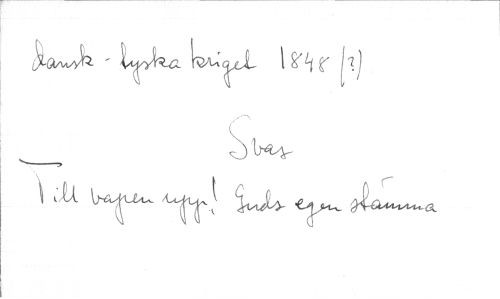 dansk-tyska kriget 1848 (?)
Svas
Till vapen upp! Guds egen stämma